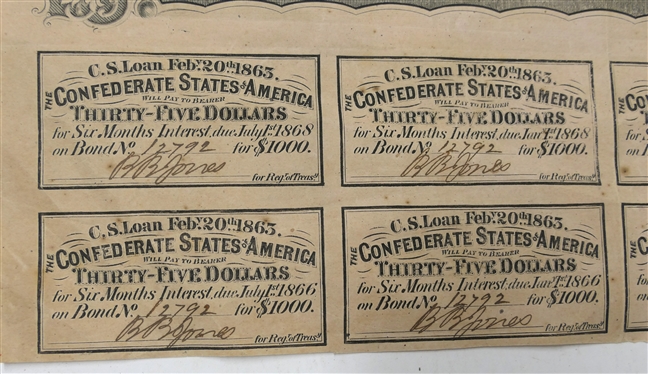 C.S. Loan Feby. 20th. 1863.
THE CONFEDERATE STATES of AMERICA
WILL PAY TO BEARER
THIRTY-FIVE DOLLARS
for Six Months Interest, due July 1st. 1868
on Bond No 12792 for $1000.
B B Jones
for Reg. of Treasy.
C.S. Loan Feby. 20th. 1863.
THE CONFEDERATE STATES of AMERICA
WILL PAY TO BEARER
THIRTY-FIVE DOLLARS
for Six Months Interest, due Jany. 1st. 1868
on Bond No 12792 for $1000.
B B Jones
for Reg. of Treasy.
C.S. Loan Feby. 20th. 1863.
THE CONFEDERATE STATES of AMERICA
WILL PAY TO BEARER
THIRTY-FIVE DOLLARS
for Six Months Interest, due July 1st. 1866
on Bond No 12792 for $1000.
B B Jones
for Reg. of Treasy.
C.S. Loan Feby. 20th. 1863.
THE CONFEDERATE STATES of AMERICA
WILL PAY TO BEARER
THIRTY-FIVE DOLLARS
for Six Months Interest, due Jany. 1st. 1866
on Bond No 12792 for $1000.
B B Jones
for Reg. of Treasy.